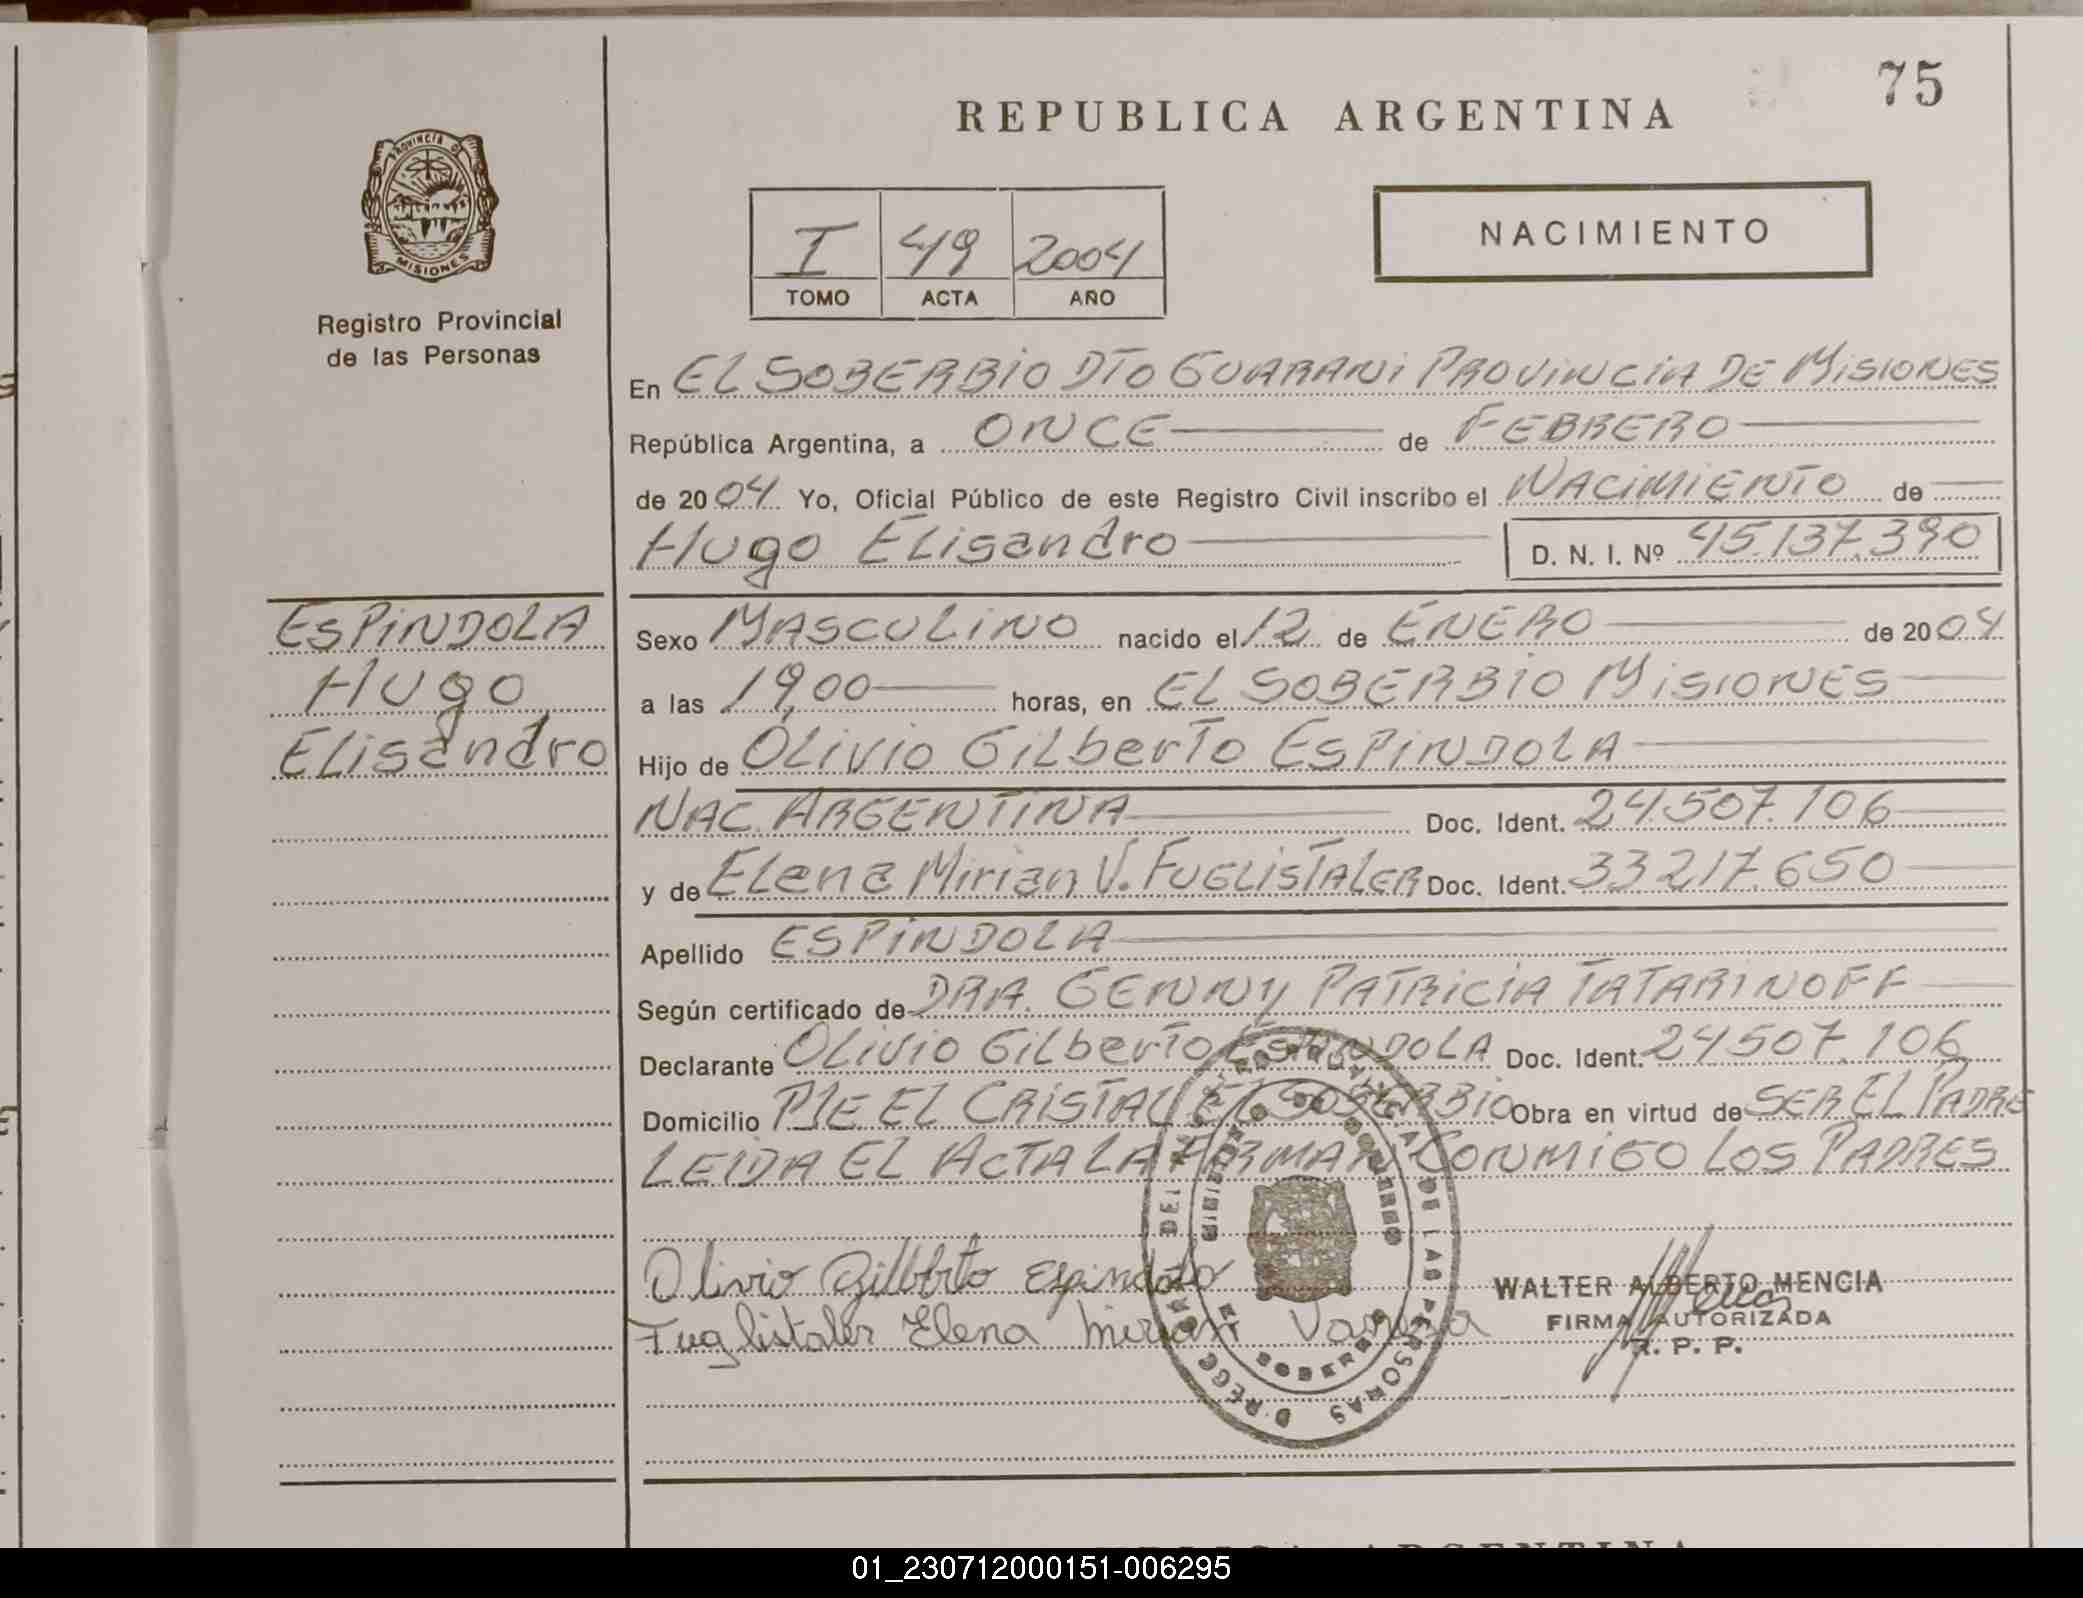 75
REPUBLICA ARGENTINA
PROVINCIA DE
MISIONES
Registro Provincial
de las Personas
I 49 2004
TOMO ACTA AÑO
NACIMIENTO
En EL SOBERBIO DTO GUARANI PROVINCIA DE MISIONES
República Argentina, a ONCE de FEBRERO
de 2004 Yo, Oficial Público de este Registro Civil inscribo el NACIMIENTO de
Hugo Elisandro D. N. I. Nº 45.137.390
ESPINDOLA
Hugo
Elisandro
Sexo MASCULINO nacido el 12 de ENERO de 2004
a las 19,00 horas, en EL SOBERBIO MISIONES
Hijo de OLIVIO GILberTO ESPINDOLA
NAC. ARGENTINA Doc. Ident. 24.507.106
y de ELena Mirian V. FUGLISTALER Doc. Ident. 33.217.650
Apellido ESPINDOLA
Según certificado de DRA. GENNY PATRICIA TATARINOFF
Declarante OLIVIO GILberTO ESPINDOLA Doc. Ident. 24.507.106
Domicilio PJE EL CRISTAL EL SOBERBIO Obra en virtud de SER EL PADRE
LEIDA EL ACTA LA FIRMAN CONMIGO LOS PADRES
Olivio Gilberto Espindola
Fuglistaler Elena Mirian Vanesa
WALTER ALBERTO MENCIA
FIRMA AUTORIZADA
R. P. P.
DE LAS PERSONAS
EL SOBERBIO
REPUBLICA ARGENTINA
01_230712000151-006295